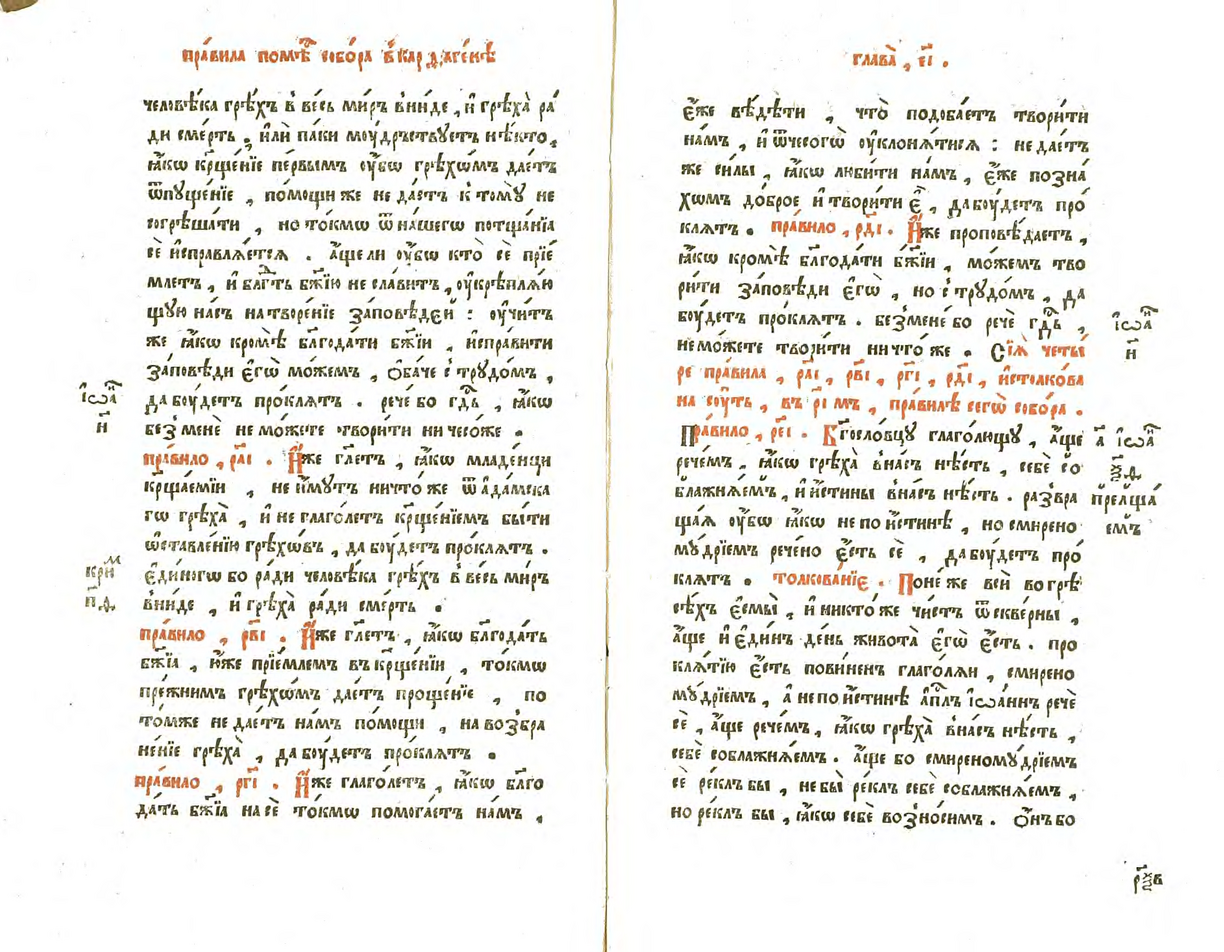 пра́вила помѣ́ст собо́ра в̾ карѳаге́нѣ
человѣ́ка грѣ́хъ в̾ ве́сь ми́ръ вни́де , и҆ грѣха̀ ра́
ди сме́рть , и҆лѝ па́ки моу́дръствꙋетъ нѣ́кто ,
ꙗ҆́кѡ кр҃ще́нїе пе́рвымъ ᲂу҆́бѡ грѣхѡ́мъ дае́тъ
ѿпꙋще́нїе , по́мощи же не дае́тъ к̾ томꙋ̀ не
согрѣша́ти , но то́кмѡ ѿ на́шегѡ потща́нїѧ
сѐ и҆справлѧ́етсѧ . а҆́ще ли ᲂу҆́бѡ кто̀ сѐ прїе́
млетъ , и҆ блгⷣть бж҃їю не сла́витъ , ᲂу҆крѣплѧ́ю
щꙋю на́съ на творе́нїе за́повѣдей : ᲂу҆чи́тъ
же ꙗ҆́кѡ кромѣ̀ блгⷣода́ти бж҃їи , и҆спра́вити
за́повѣди є҆гѡ̀ мо́жемъ , ѻ҆ба́че с̾ трꙋдо́мъ ,
да бꙋ́детъ про́клѧтъ . рече́ бо гдⷭ҇ь , ꙗ҆́кѡ
і҆ѡа҃
без̾ менѐ не мо́жете твори́ти ничесо́же .
и҃
пра́вило , ра҃і . И҆́же гл҃етъ , ꙗ҆́кѡ младе́нци
кр҃ща́емїи , не и҆́мꙋтъ ничто́же ѿ а҆да́мска
гѡ грѣха̀ , и҆ не глаго́летъ кр҃ще́нїемъ бы́ти
ѡ҆ставле́нїю грѣхѡ́въ , да бꙋ́детъ про́клѧтъ .
є҆ди́ногѡ бо ра́ди человѣ́ка грѣ́хъ в̾ ве́сь ми́ръ
кри м
вни́де , и҆ грѣха̀ ра́ди сме́рть .
пра́вило , рв҃і . И҆́же гл҃етъ , ꙗ҆́кѡ блгⷣода́ть
бж҃їа , ю҆́же прїе́млемъ въ кр҃ще́нїи , то́кмѡ
пре́жнимъ грѣхѡ́мъ дае́тъ проще́нїе , по
то́мже не дае́тъ на́мъ по́мощи , на возбра
не́нїе грѣха̀ , да бꙋ́детъ про́клѧтъ .
пра́вило , рг҃і . И҆́же глаго́летъ , ꙗ҆́кѡ блг҃о
да́ть бж҃їа на сѐ то́кмѡ помога́етъ на́мъ ,
глава̀ , є҃і .
є҆́же вѣ́дѣти , что̀ подоба́етъ твори́ти
на́мъ , и҆ ѿчесогѡ̀ ᲂу҆клонѧ́тисѧ : не дае́тъ
же си́лы , ꙗ҆́кѡ люби́ти на́мъ , є҆́же позна́
хѡмъ до́брое и҆ твори́ти є҆̀ , да бꙋ́детъ про́
клѧтъ . пра́вило , рд҃і . И҆́же проповѣ́даетъ ,
ꙗ҆́кѡ кромѣ̀ блгⷣода́ти бж҃їи , мо́жемъ тво
ри́ти за́повѣди є҆гѡ̀ , но с̾ трꙋдо́мъ , да
бꙋ́детъ про́клѧтъ . без̾ мене́ бо речѐ гдⷭ҇ь ,
і҆ѡа҃
не мо́жете твори́ти ничто́же . Сїѧ̑ четы́
и҃
ре пра́вила , ра҃і , рв҃і , рг҃і , рд҃і , и҆столко́ва
на сꙋ́ть , въ рі҃ мъ , пра́вилѣ сегѡ̀ собо́ра .
Пра́вило , ре҃і . Бг҃осло́вцꙋ глаго́лющꙋ , а҆́ще
а҃ і҆ѡа҃
рече́мъ , ꙗ҆́кѡ грѣха̀ в̾ на́съ нѣ́сть , себѐ со
блажнѧ́емъ , и҆ и҆́стины в̾ на́съ нѣ́сть . развра
прелща́
ща́ѧ ᲂу҆́бѡ ꙗ҆́кѡ не по и҆́стинѣ , но смирено
емъ
мꙋ́дрїемъ рече́но є҆́сть сѐ , да бꙋ́детъ про́
клѧтъ . толкова́нїе . Поне́же всѝ во грѣ
сѣ́хъ є҆смы̀ , и҆ никто́же чи́стъ ѿ скве́рны ,
а҆́ще и҆ є҆ди́нъ де́нь живота̀ є҆гѡ̀ є҆́сть . про
клѧ́тїю є҆́сть пови́ненъ глаго́лѧи , смирено
мꙋ́дрїемъ , а҆ не по и҆́стинѣ а҆пⷭ҇лъ і҆ѡа́ннъ речѐ
сѐ , а҆́ще рече́мъ , ꙗ҆́кѡ грѣха̀ в̾ на́съ нѣ́сть ,
себѐ соблажнѧ́емъ . а҆́ще бо смиреномꙋ́дрїемъ
сѐ ре́клъ бы , не бы̀ ре́клъ себѐ соблажнѧ́емъ ,
но ре́клъ бы , ꙗ҆́кѡ себѐ возно́симъ . Ѻ҆́нъ бо